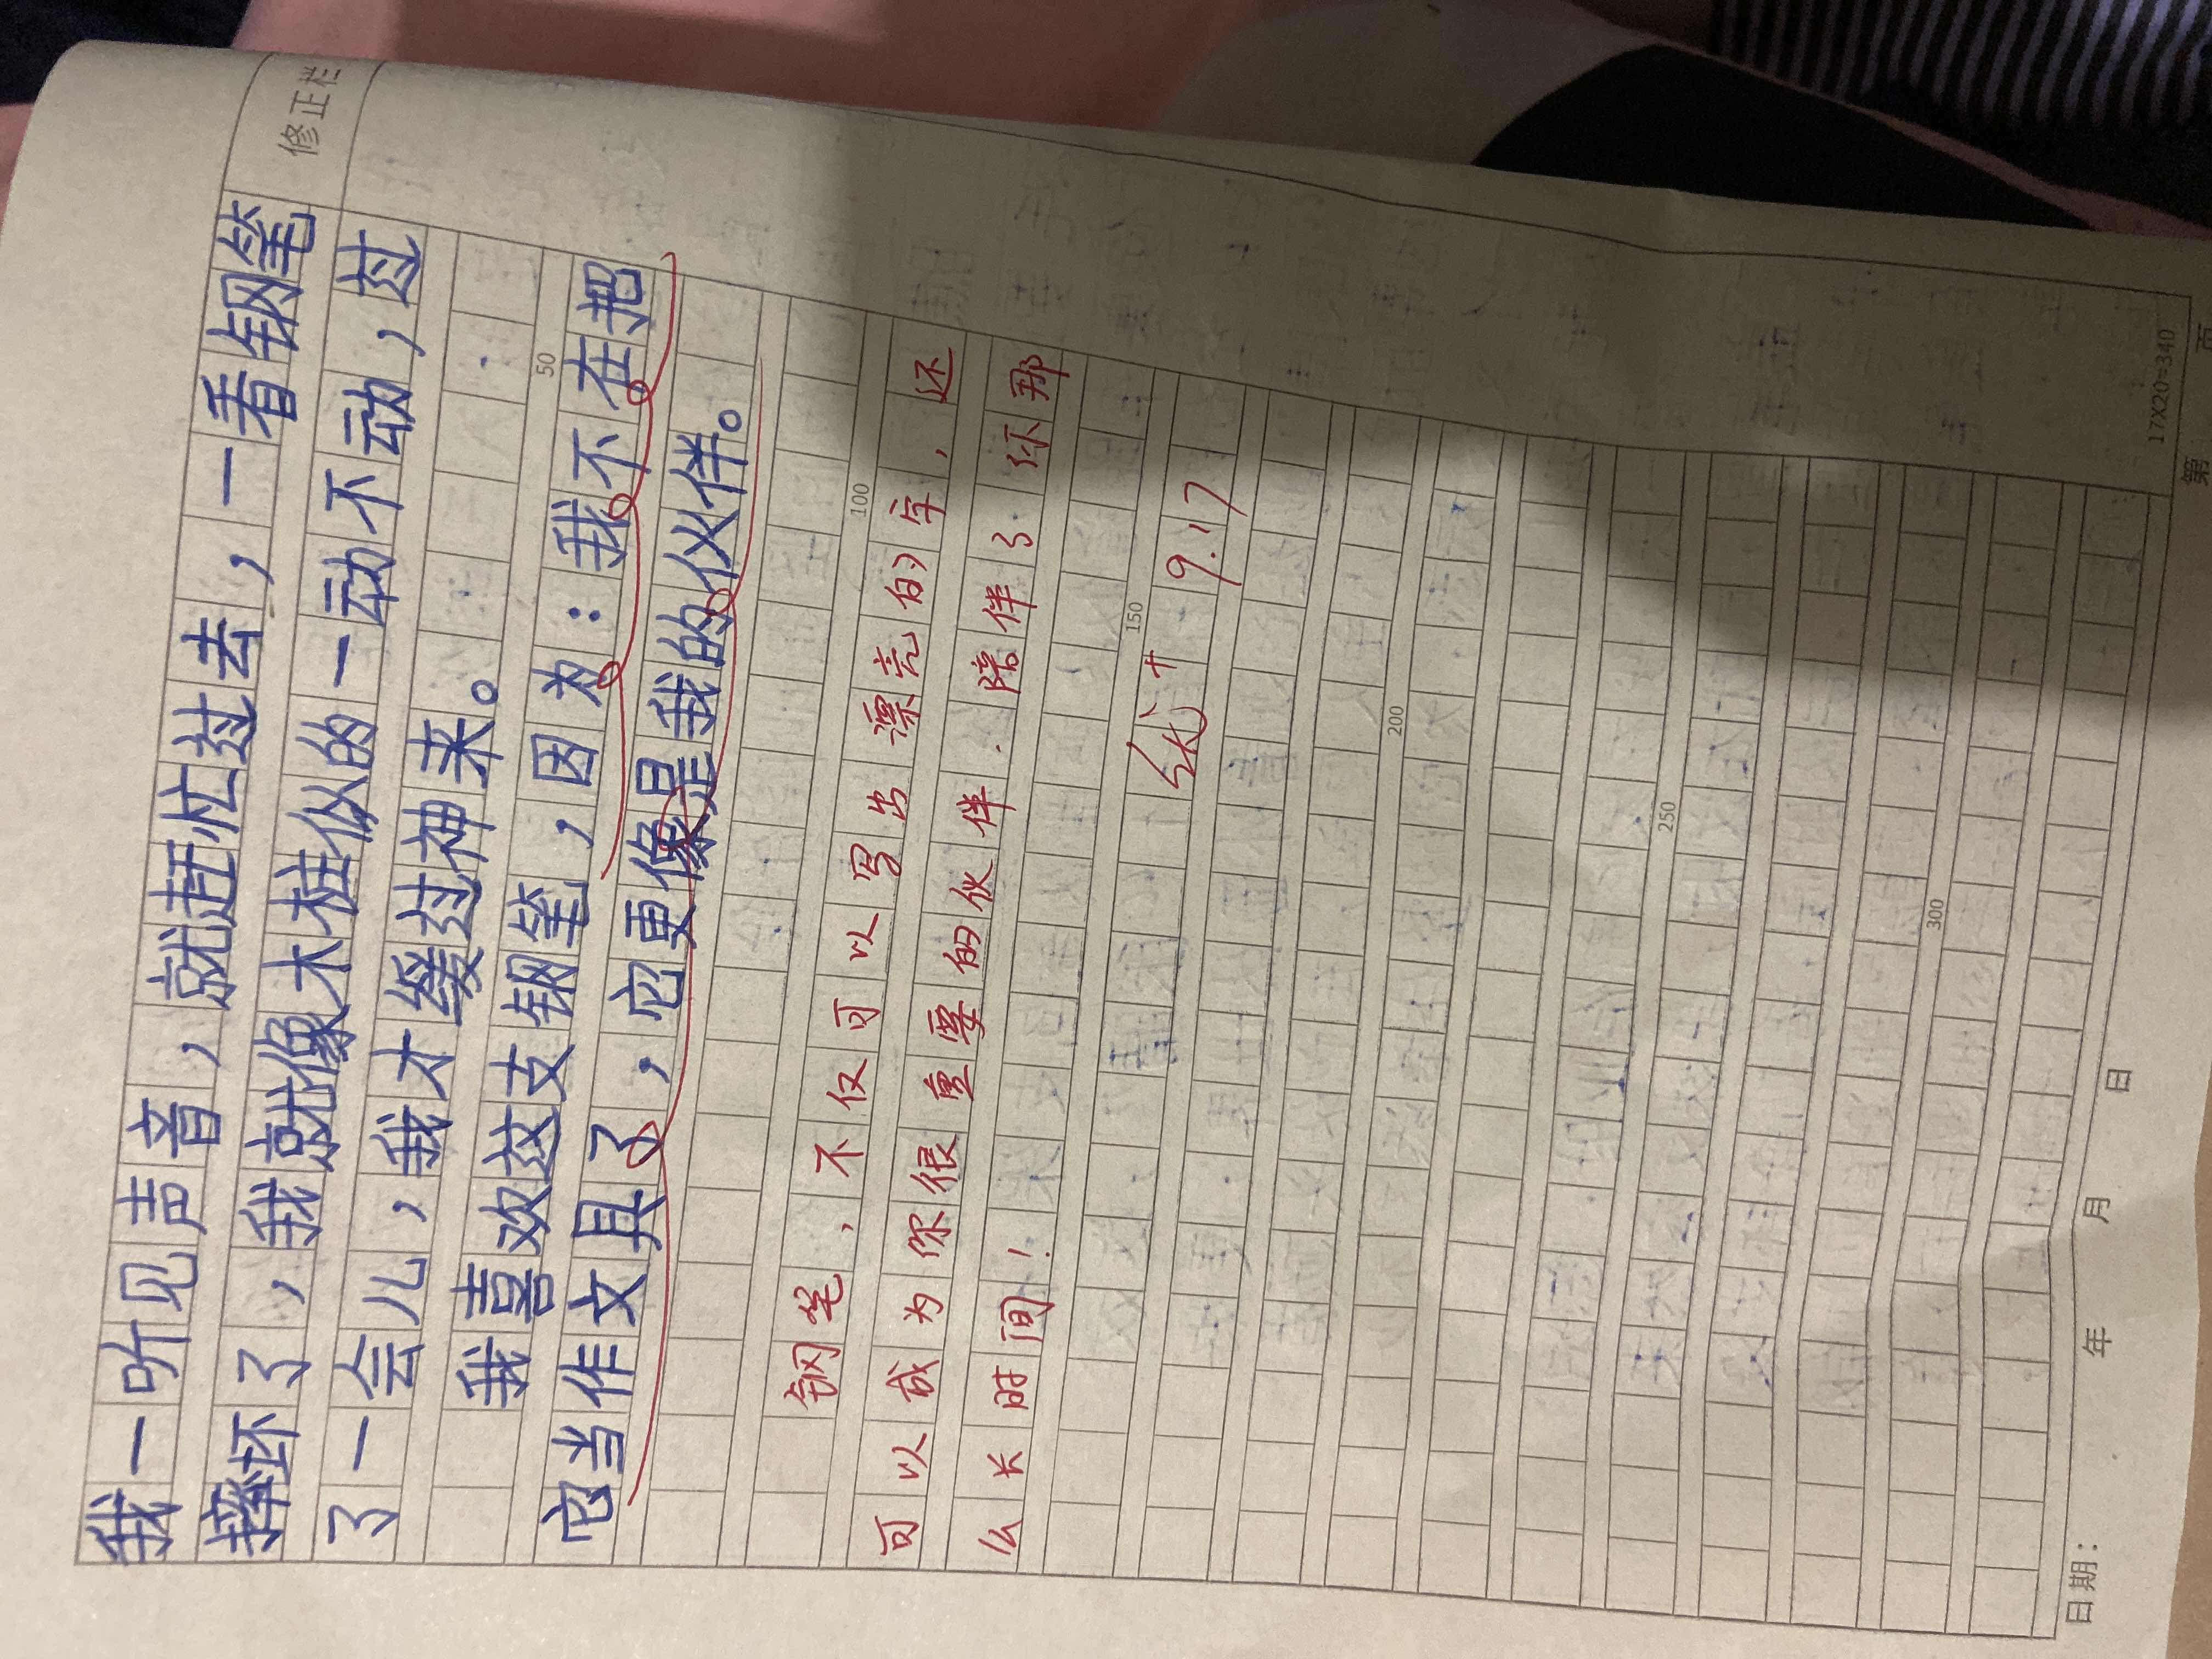 修正栏
我一听见声音，就赶忙过去，一看钢笔
摔坏了，我就像木桩似的一动不动，过
了一会儿，我才缓过神来。
50
我喜欢这支钢笔，因为：我不在把
它当作文具了，它更像是我的伙伴。
100
钢笔，不仅可以写出漂亮的字，还
可以成为你很重要的伙伴．陪伴了你那
么长时间！
150
优+ 9.17
200
250
300
17X20=340
日期： 年 月 日 第 页